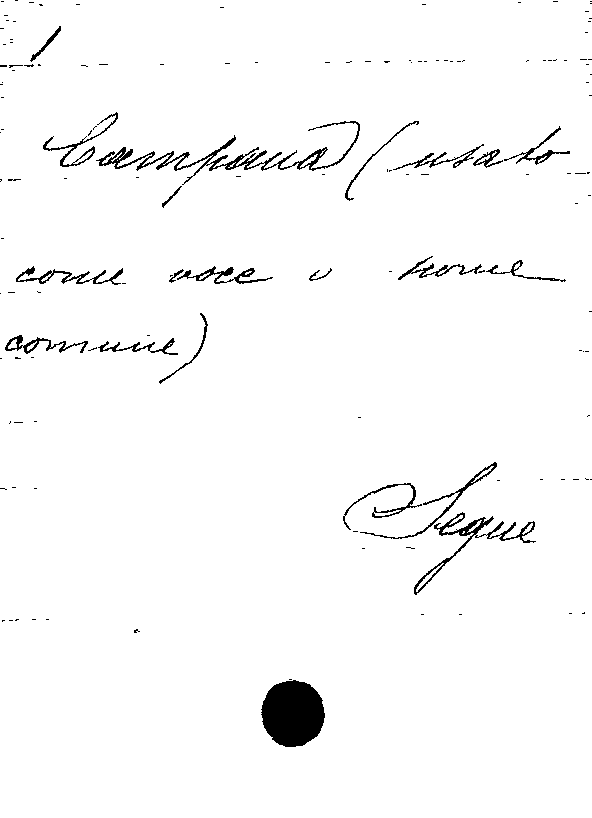 1
Campana (usato
come voce o nome
comune)
Segue